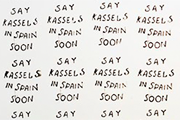 SAY SAY SAY SAY
KASSELS KASSELS KASSELS KASSELS
IN SPAIN IN SPAIN IN SPAIN IN SPAIN
SOON SOON SOON SOON
SAY SAY SAY SAY
KASSELS KASSELS KASSELS KASSELS
IN SPAIN IN SPAIN IN SPAIN IN SPAIN
SOON SOON SOON SOON
SAY SAY SAY SAY